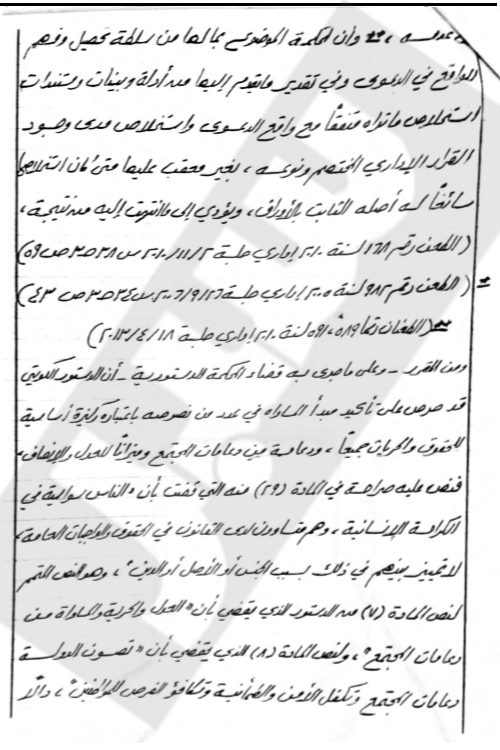 عدمه ، ** وأن لمحكمة الموضوع بمالها من سلطة تحصيل وفهم
الواقع في الدعوى وفي تقدير ما يقدم إليها من أدلة وبينات ومستندات
استخلاص ما تراه متفقاً مع واقع الدعوى واستخلاص مدى وجود
القرار الإداري المختصم ونوعه ، بغير معقب عليها متى كان استخلاصها
سائغاً له أصله الثابت بالأوراق ، ويؤدي إلى ما انتهت إليه من نتيجة ،
( الطعن رقم ١٦٨ لسنة ٢٠١٠ إداري جلسة ٢٠١٠/١١/٢ س ٣٨ ج ٣ ص ٥٩ )
* ( الطعن رقم ٩٨٢ لسنة ٢٠٠٥ إداري جلسة ٢٠٠٦/٩/٢٦ س ٣٤ ج ٣ ص ٤٣ )
** ( الطعنان رقما ٥٨٩ ، ٥٩١ لسنة ٢٠١٠ إداري جلسة ٢٠١٣/٤/١٨ )
ومن المقرر - وعلى ما جرى به قضاء المحكمة الدستورية - أن الدستور الكويتي
قد حرص على تأكيد مبدأ المساواة في عدد من نصوصه باعتباره ركيزة أساسية
للحقوق والحريات جميعاً ، ودعامة من دعامات المجتمع وميزاناً للعدل والإنصاف ،
فنص عليه صراحة في المادة (٢٩) منه التي قضت بأن " الناس سواسية في
الكرامة الإنسانية ، وهم متساوون لدى القانون في الحقوق والواجبات العامة ،
لا تمييز بينهم في ذلك بسبب الجنس أو الأصل أو الدين " ، وهو النص المتمم
لنص المادة (٧) من الدستور الذي يقضي بأن " العدل والحرية والمساواة من
دعامات المجتمع " ، ولنص المادة (٨) الذي يقضي بأن " تصون الدولة
دعامات المجتمع وتكفل الأمن والطمأنينة وتكافؤ الفرص للمواطنين " ، دالاً